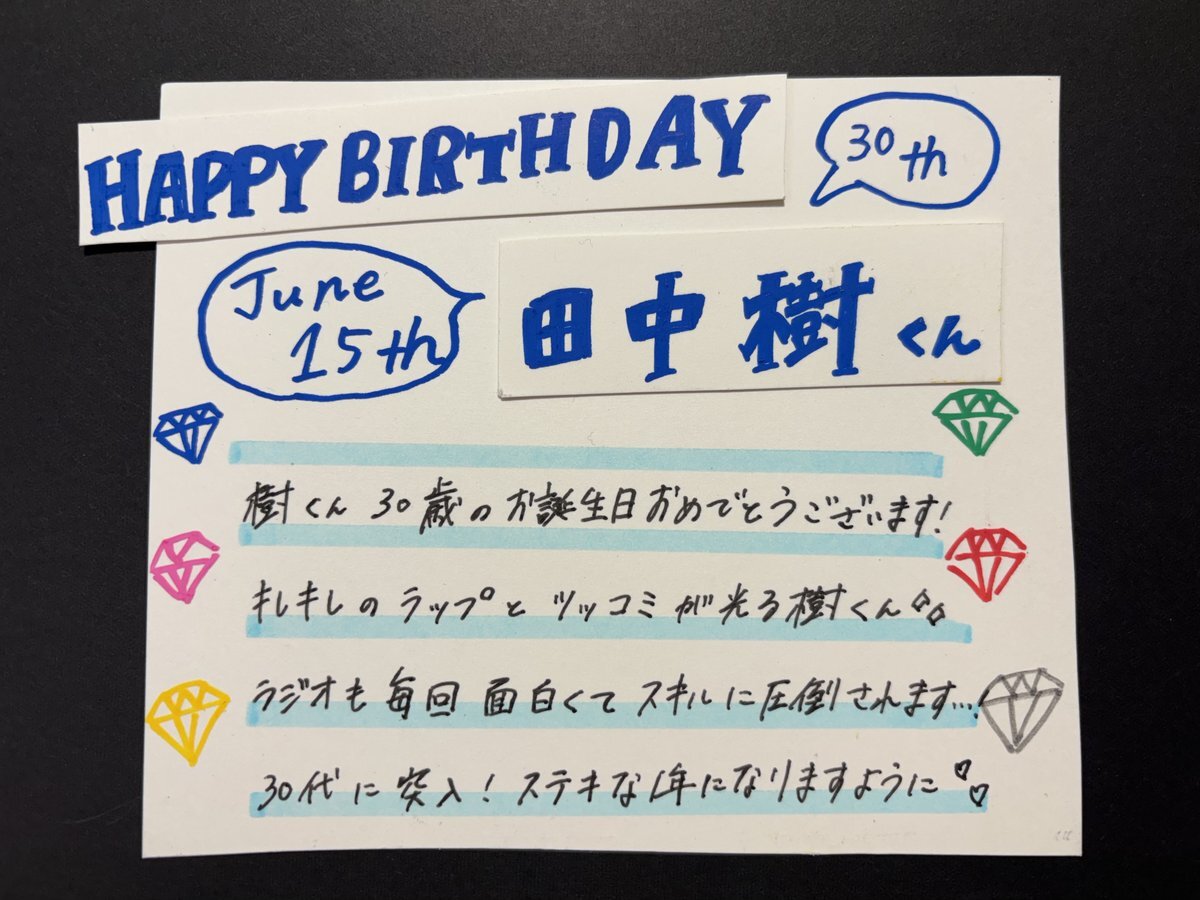 HAPPY BIRTHDAY
30th
June
15th
田中樹くん
樹くん30歳のお誕生日おめでとうございます!
キレキレのラップとツッコミが光る樹くん
ラジオも毎回面白くてスキルに圧倒されます…!
30代に突入!ステキな1年になりますように♡♡